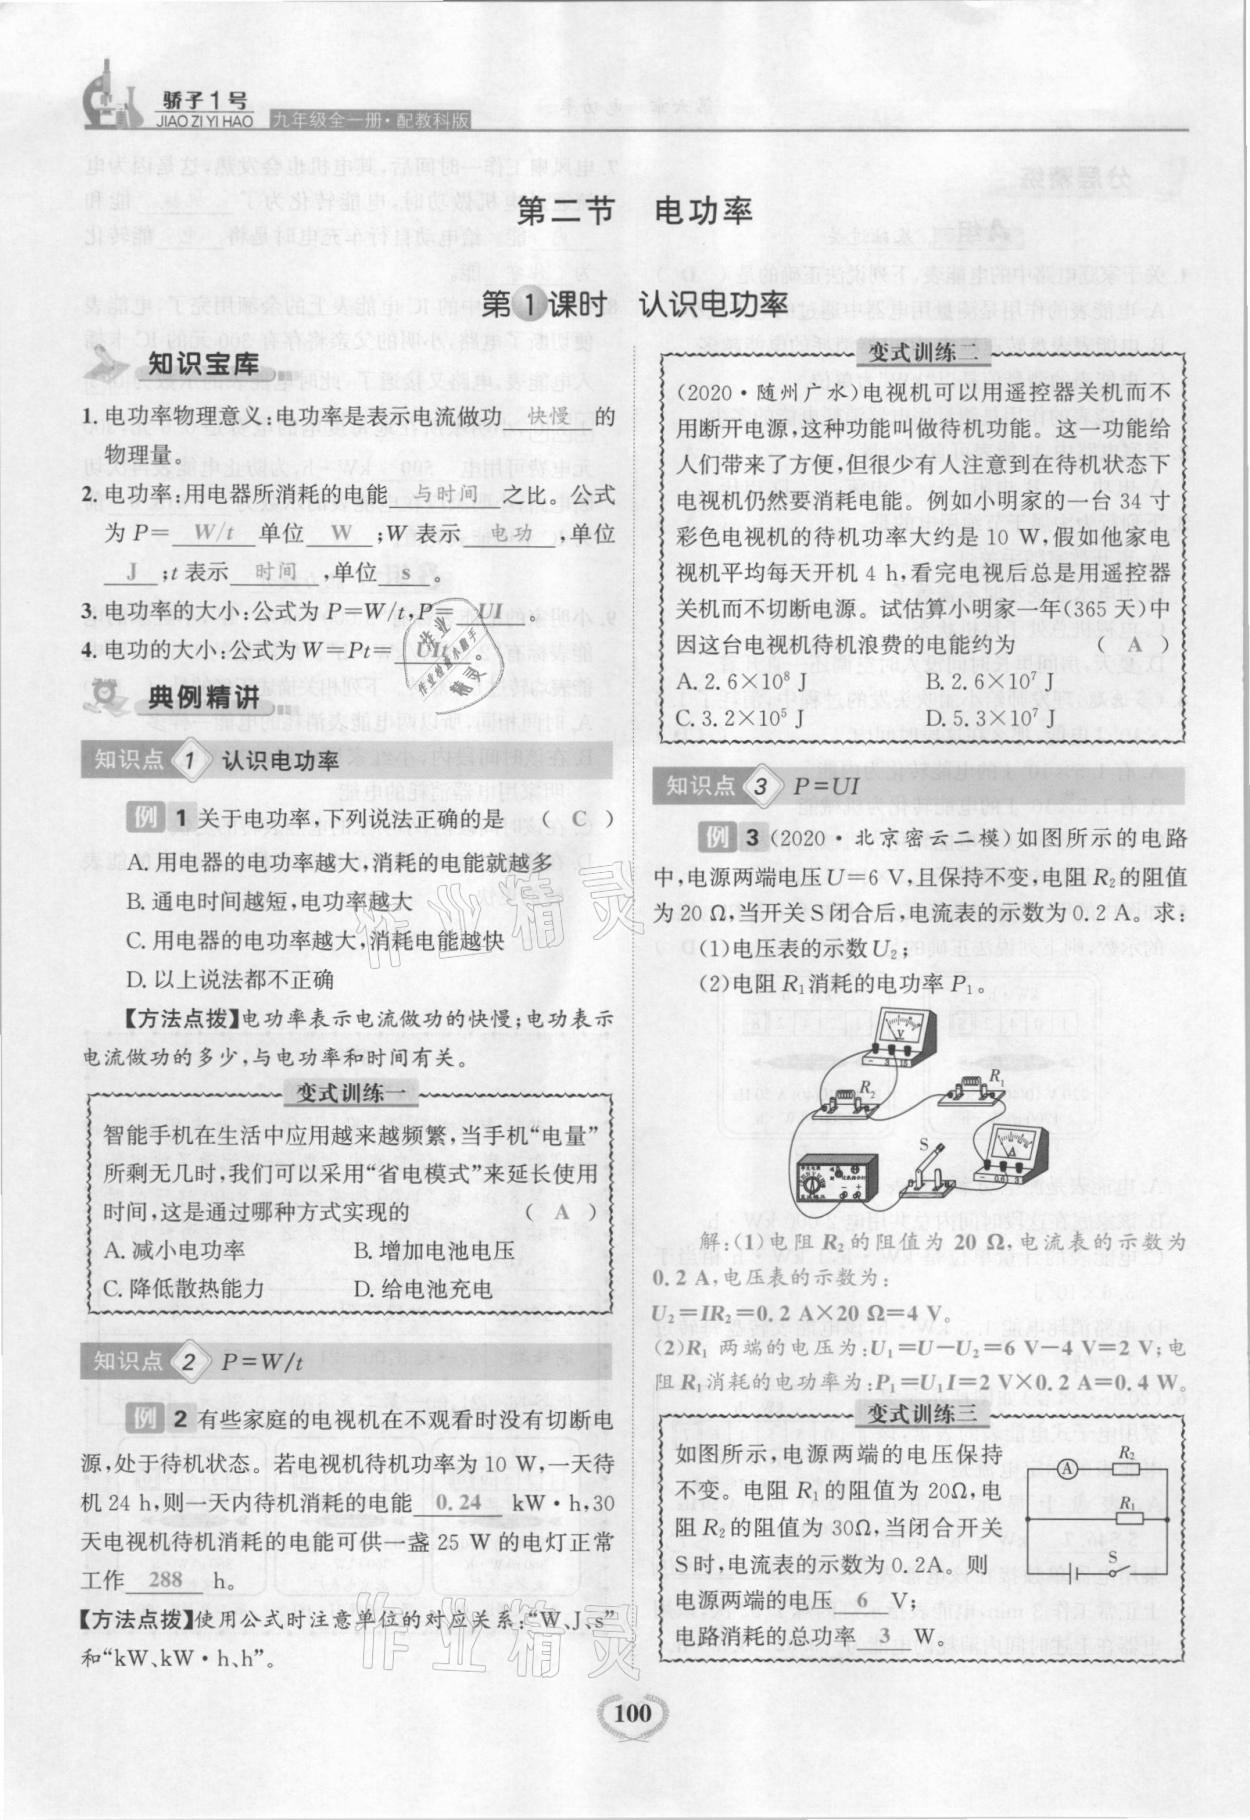 骄子1号
JIAO ZI YI HAO
九年级全一册·配教科版
第二节　电功率
第1课时　认识电功率
知识宝库
1. 电功率物理意义:电功率是表示电流做功 快慢 的
物理量。
2. 电功率:用电器所消耗的电能 与时间 之比。公式
为P= W/t 单位 W ;W表示 电功 ,单位
J ;t表示 时间 ,单位 s 。
3. 电功率的大小:公式为P=W/t,P= UI 。
4. 电功的大小:公式为W=Pt= UIt 。
典例精讲
知识点 1 认识电功率
例 1 关于电功率,下列说法正确的是 ( C )
A. 用电器的电功率越大,消耗的电能就越多
B. 通电时间越短,电功率越大
C. 用电器的电功率越大,消耗电能越快
D. 以上说法都不正确
【方法点拨】电功率表示电流做功的快慢;电功表示
电流做功的多少,与电功率和时间有关。
变式训练一
智能手机在生活中应用越来越频繁,当手机“电量”
所剩无几时,我们可以采用“省电模式”来延长使用
时间,这是通过哪种方式实现的 ( A )
A. 减小电功率 B. 增加电池电压
C. 降低散热能力 D. 给电池充电
知识点 2 P=W/t
例 2 有些家庭的电视机在不观看时没有切断电
源,处于待机状态。若电视机待机功率为10 W,一天待
机24 h,则一天内待机消耗的电能 0.24 kW·h,30
天电视机待机消耗的电能可供一盏25 W的电灯正常
工作 288 h。
【方法点拨】使用公式时注意单位的对应关系:“W、J、s”
和“kW、kW·h、h”。
变式训练二
(2020·随州广水)电视机可以用遥控器关机而不
用断开电源,这种功能叫做待机功能。这一功能给
人们带来了方便,但很少有人注意到在待机状态下
电视机仍然要消耗电能。例如小明家的一台34寸
彩色电视机的待机功率大约是10 W,假如他家电
视机平均每天开机4 h,看完电视后总是用遥控器
关机而不切断电源。试估算小明家一年(365天)中
因这台电视机待机浪费的电能约为 ( A )
A. 2.6×10⁸ J B. 2.6×10⁷ J
C. 3.2×10⁵ J D. 5.3×10⁷ J
知识点 3 P=UI
例 3 (2020·北京密云二模)如图所示的电路
中,电源两端电压U=6 V,且保持不变,电阻R₂的阻值
为20 Ω,当开关S闭合后,电流表的示数为0.2 A。求:
(1)电压表的示数U₂;
(2)电阻R₁消耗的电功率P₁。
V
R₂
R₁
S
A
解:(1)电阻R₂的阻值为20 Ω,电流表的示数为
0.2 A,电压表的示数为:
U₂=IR₂=0.2 A×20 Ω=4 V。
(2)R₁两端的电压为:U₁=U−U₂=6 V−4 V=2 V;电
阻R₁消耗的电功率为:P₁=U₁I=2 V×0.2 A=0.4 W。
变式训练三
如图所示,电源两端的电压保持
不变。电阻R₁的阻值为20Ω,电
阻R₂的阻值为30Ω,当闭合开关
S时,电流表的示数为0.2A。则
电源两端的电压 6 V;
电路消耗的总功率 3 W。
A
R₂
R₁
S
100
作业精灵
作业精灵
作业
作业检查小助手
精灵